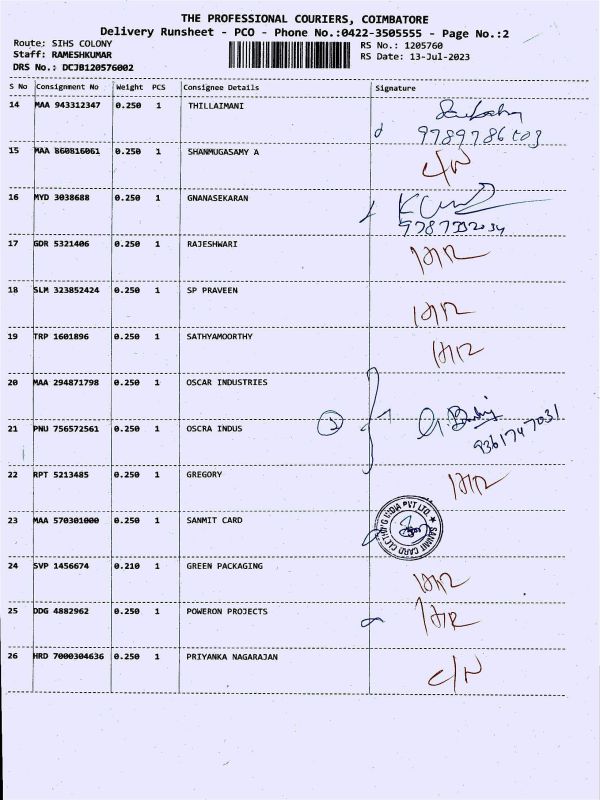 THE PROFESSIONAL COURIERS, COIMBATORE
Delivery Runsheet - PCO - Phone No.:0422-3505555 - Page No.:2
Route: SIHS COLONY
RS No.: 1205760
Staff: RAMESHKUMAR
RS Date: 13-Jul-2023
DRS No.: DCJB120576002
S No Consignment No Weight PCS Consignee Details Signature
14 MAA 943312347 0.250 1 THILLAIMANI
15 MAA 860816061 0.250 1 SHANMUGASAMY A C/N
16 MYD 3038688 0.250 1 GNANASEKARAN
17 GDR 5321406 0.250 1 RAJESHWARI
18 SLM 323852424 0.250 1 SP PRAVEEN
19 TRP 1601896 0.250 1 SATHYAMOORTHY
20 MAA 294871798 0.250 1 OSCAR INDUSTRIES
21 PNU 756572561 0.250 1 OSCRA INDUS 2 9361747031
22 RPT 5213485 0.250 1 GREGORY
23 MAA 570301000 0.250 1 SANMIT CARD
24 SVP 1456674 0.210 1 GREEN PACKAGING
25 DDG 4882962 0.250 1 POWERON PROJECTS
26 HRD 7000304636 0.250 1 PRIYANKA NAGARAJAN C/N